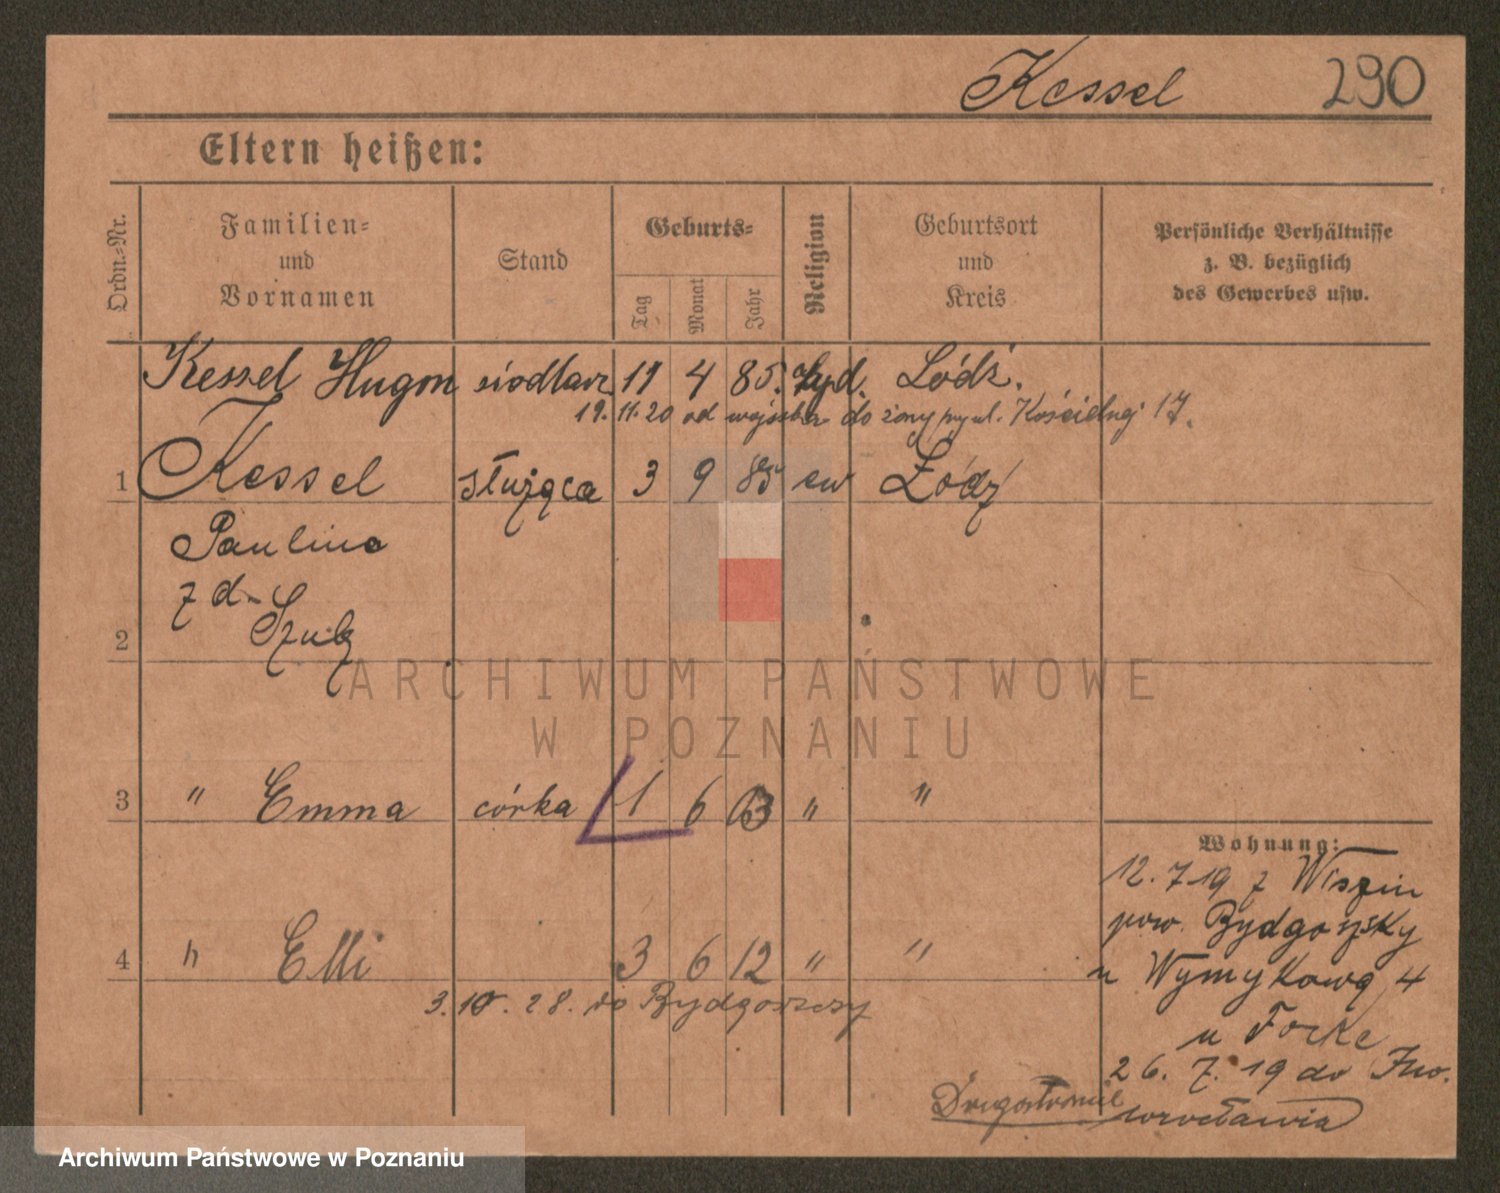 Kessel 290
Eltern heißen:
Ordn.-Nr. Familien- und Vornamen Stand Geburts- Tag Monat Jahr Religion Geburtsort und Kreis Persönliche Verhältnisse z. B. bezüglich des Gewerbes usw.
Kessel Hugon siodlarz 11 4 85. żyd. Łódź.
19. 11. 20 od wojska do żony przy ul. Kościelnej 17.
1 Kessel służąca 3 9 85 ew Łódź
Paulina
z d-
2 Szulz
ARCHIWUM PAŃSTWOWE
W POZNANIU
3 " Emma córka 1 6 03 " "
Wohnung:
12. 7 19 z Wiszin
pow. Bydgoszsky
4 " Elli 3 6 12 " "
u Wymykowa 4
3. 10. 28. do Bydgoszczy
u Forke
26. 7. 19 do Ino.
wrocławia
Drugostronie
Archiwum Państwowe w Poznaniu